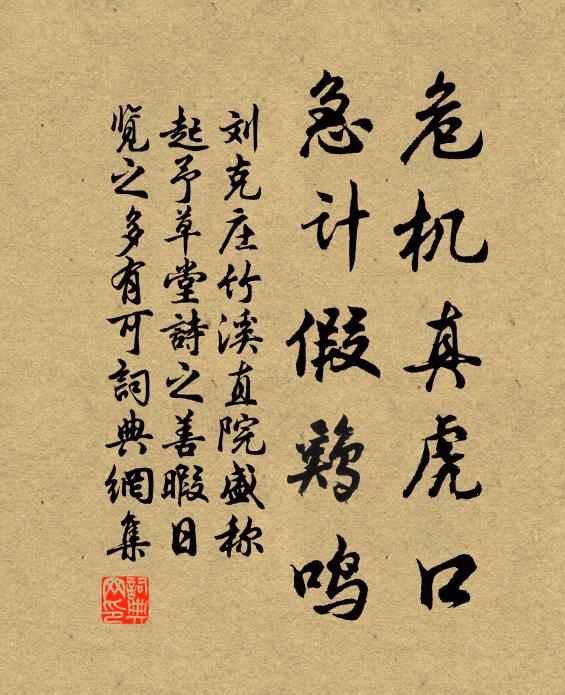 危机真虎口
急计假鸡鸣
刘克庄竹溪直院盛称
起予草堂詩之善暇日
览之多有可詞典網集
詞典网印